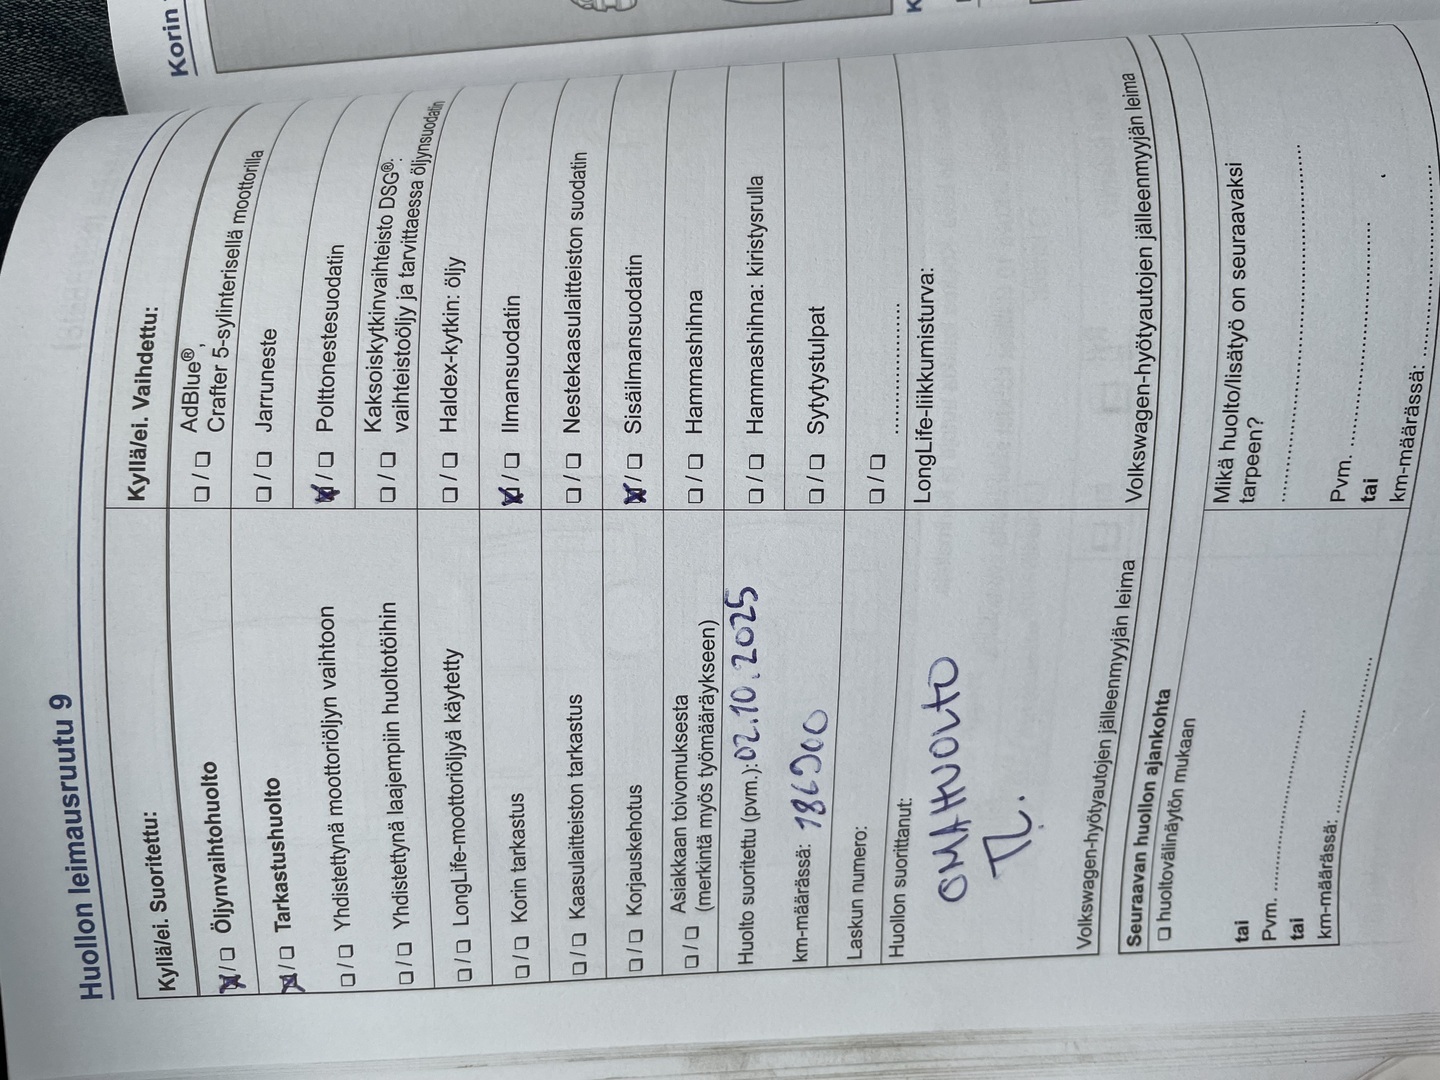 Korin
K
Huollon leimausruutu 9
Kyllä/ei. Suoritettu:
❑/❑ Öljynvaihtohuolto
❑/❑ Tarkastushuolto
❑/❑ Yhdistettynä moottoriöljyn vaihtoon
❑/❑ Yhdistettynä laajempiin huoltotöihin
❑/❑ LongLife-moottoriöljyä käytetty
❑/❑ Korin tarkastus
❑/❑ Kaasulaitteiston tarkastus
❑/❑ Korjauskehotus
❑/❑ Asiakkaan toivomuksesta
(merkintä myös työmääräykseen)
Huolto suoritettu (pvm.): 02.10.2025
km-määrässä:
Laskun numero:
Huollon suorittanut:
OMAHUOLTO
TL.
Volkswagen-hyötyautojen jälleenmyyjän leima
Kyllä/ei. Vaihdettu:
❑/❑ AdBlue®,
Crafter 5-sylinterisellä moottorilla
❑/❑ Jarruneste
❑/❑ Polttonestesuodatin
❑/❑ Kaksoiskytkinvaihteisto DSG®:
vaihteistoöljy ja tarvittaessa öljynsuodatin
❑/❑ Haldex-kytkin: öljy
❑/❑ Ilmansuodatin
❑/❑ Nestekaasulaitteiston suodatin
❑/❑ Sisäilmansuodatin
❑/❑ Hammashihna
❑/❑ Hammashihna: kiristysrulla
❑/❑ Sytytystulpat
❑/❑ ....................
LongLife-liikkumisturva:
Volkswagen-hyötyautojen jälleenmyyjän leima
Seuraavan huollon ajankohta
❑ huoltovälinäytön mukaan
tai
Pvm. ..............................
tai
km-määrässä: ..............................
Mikä huolto/lisätyö on seuraavaksi
tarpeen?
............................................................
Pvm. ..............................
tai
km-määrässä: ..............................